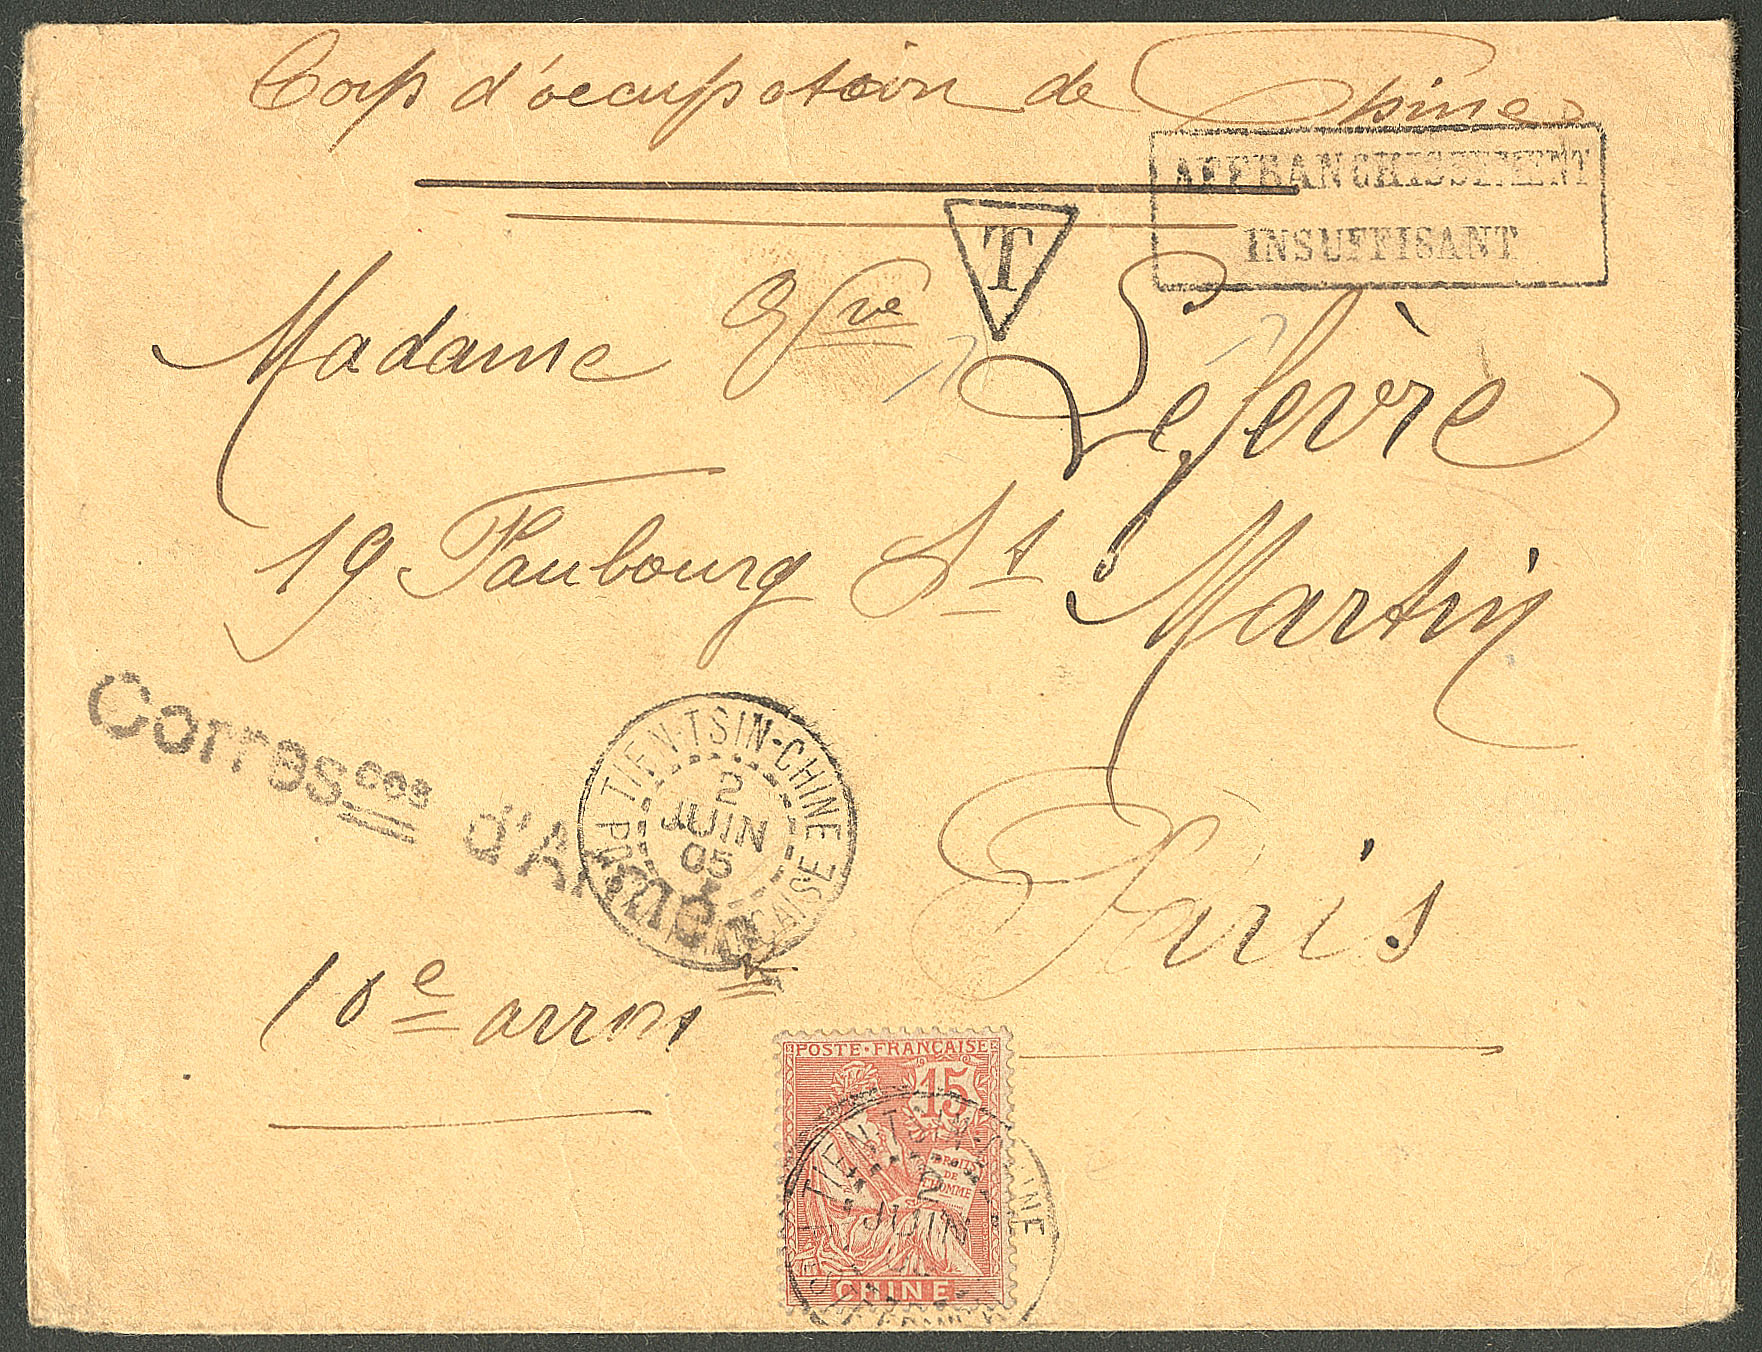 Corps d'occupation de Chine
AFFRANCHISSEMENT
INSUFFISANT
T
Madame Vve Lefèvre
19 Faubourg St Martin
Corresces d'Armées
TIEN-TSIN-CHINE
2
JUIN
05
POSTE FRANÇAISE
Paris
10e arront
POSTE FRANÇAISE
15
DROITS
DE
L'HOMME
TIEN-TSIN-CHINE
2
JUIN
CHINE